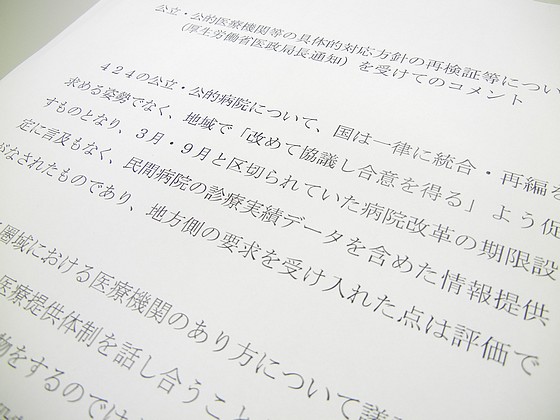 公立・公的医療機関等の具体的対応方針の再検証等につい
（厚生労働省医政局長通知）を受けてのコメント
４２４の公立・公的病院について、国は一律に統合・再編を
求める姿勢でなく、地域で「改めて協議し合意を得る」よう促
すものとなり、３月・９月と区切られていた病院改革の期限設
定に言及もなく、民間病院の診療実績データを含めた情報提供
がなされたものであり、地方側の要求を受け入れた点は評価で
圏域における医療機関のあり方について議
医療提供体制を話し合うこと
物をするのでは